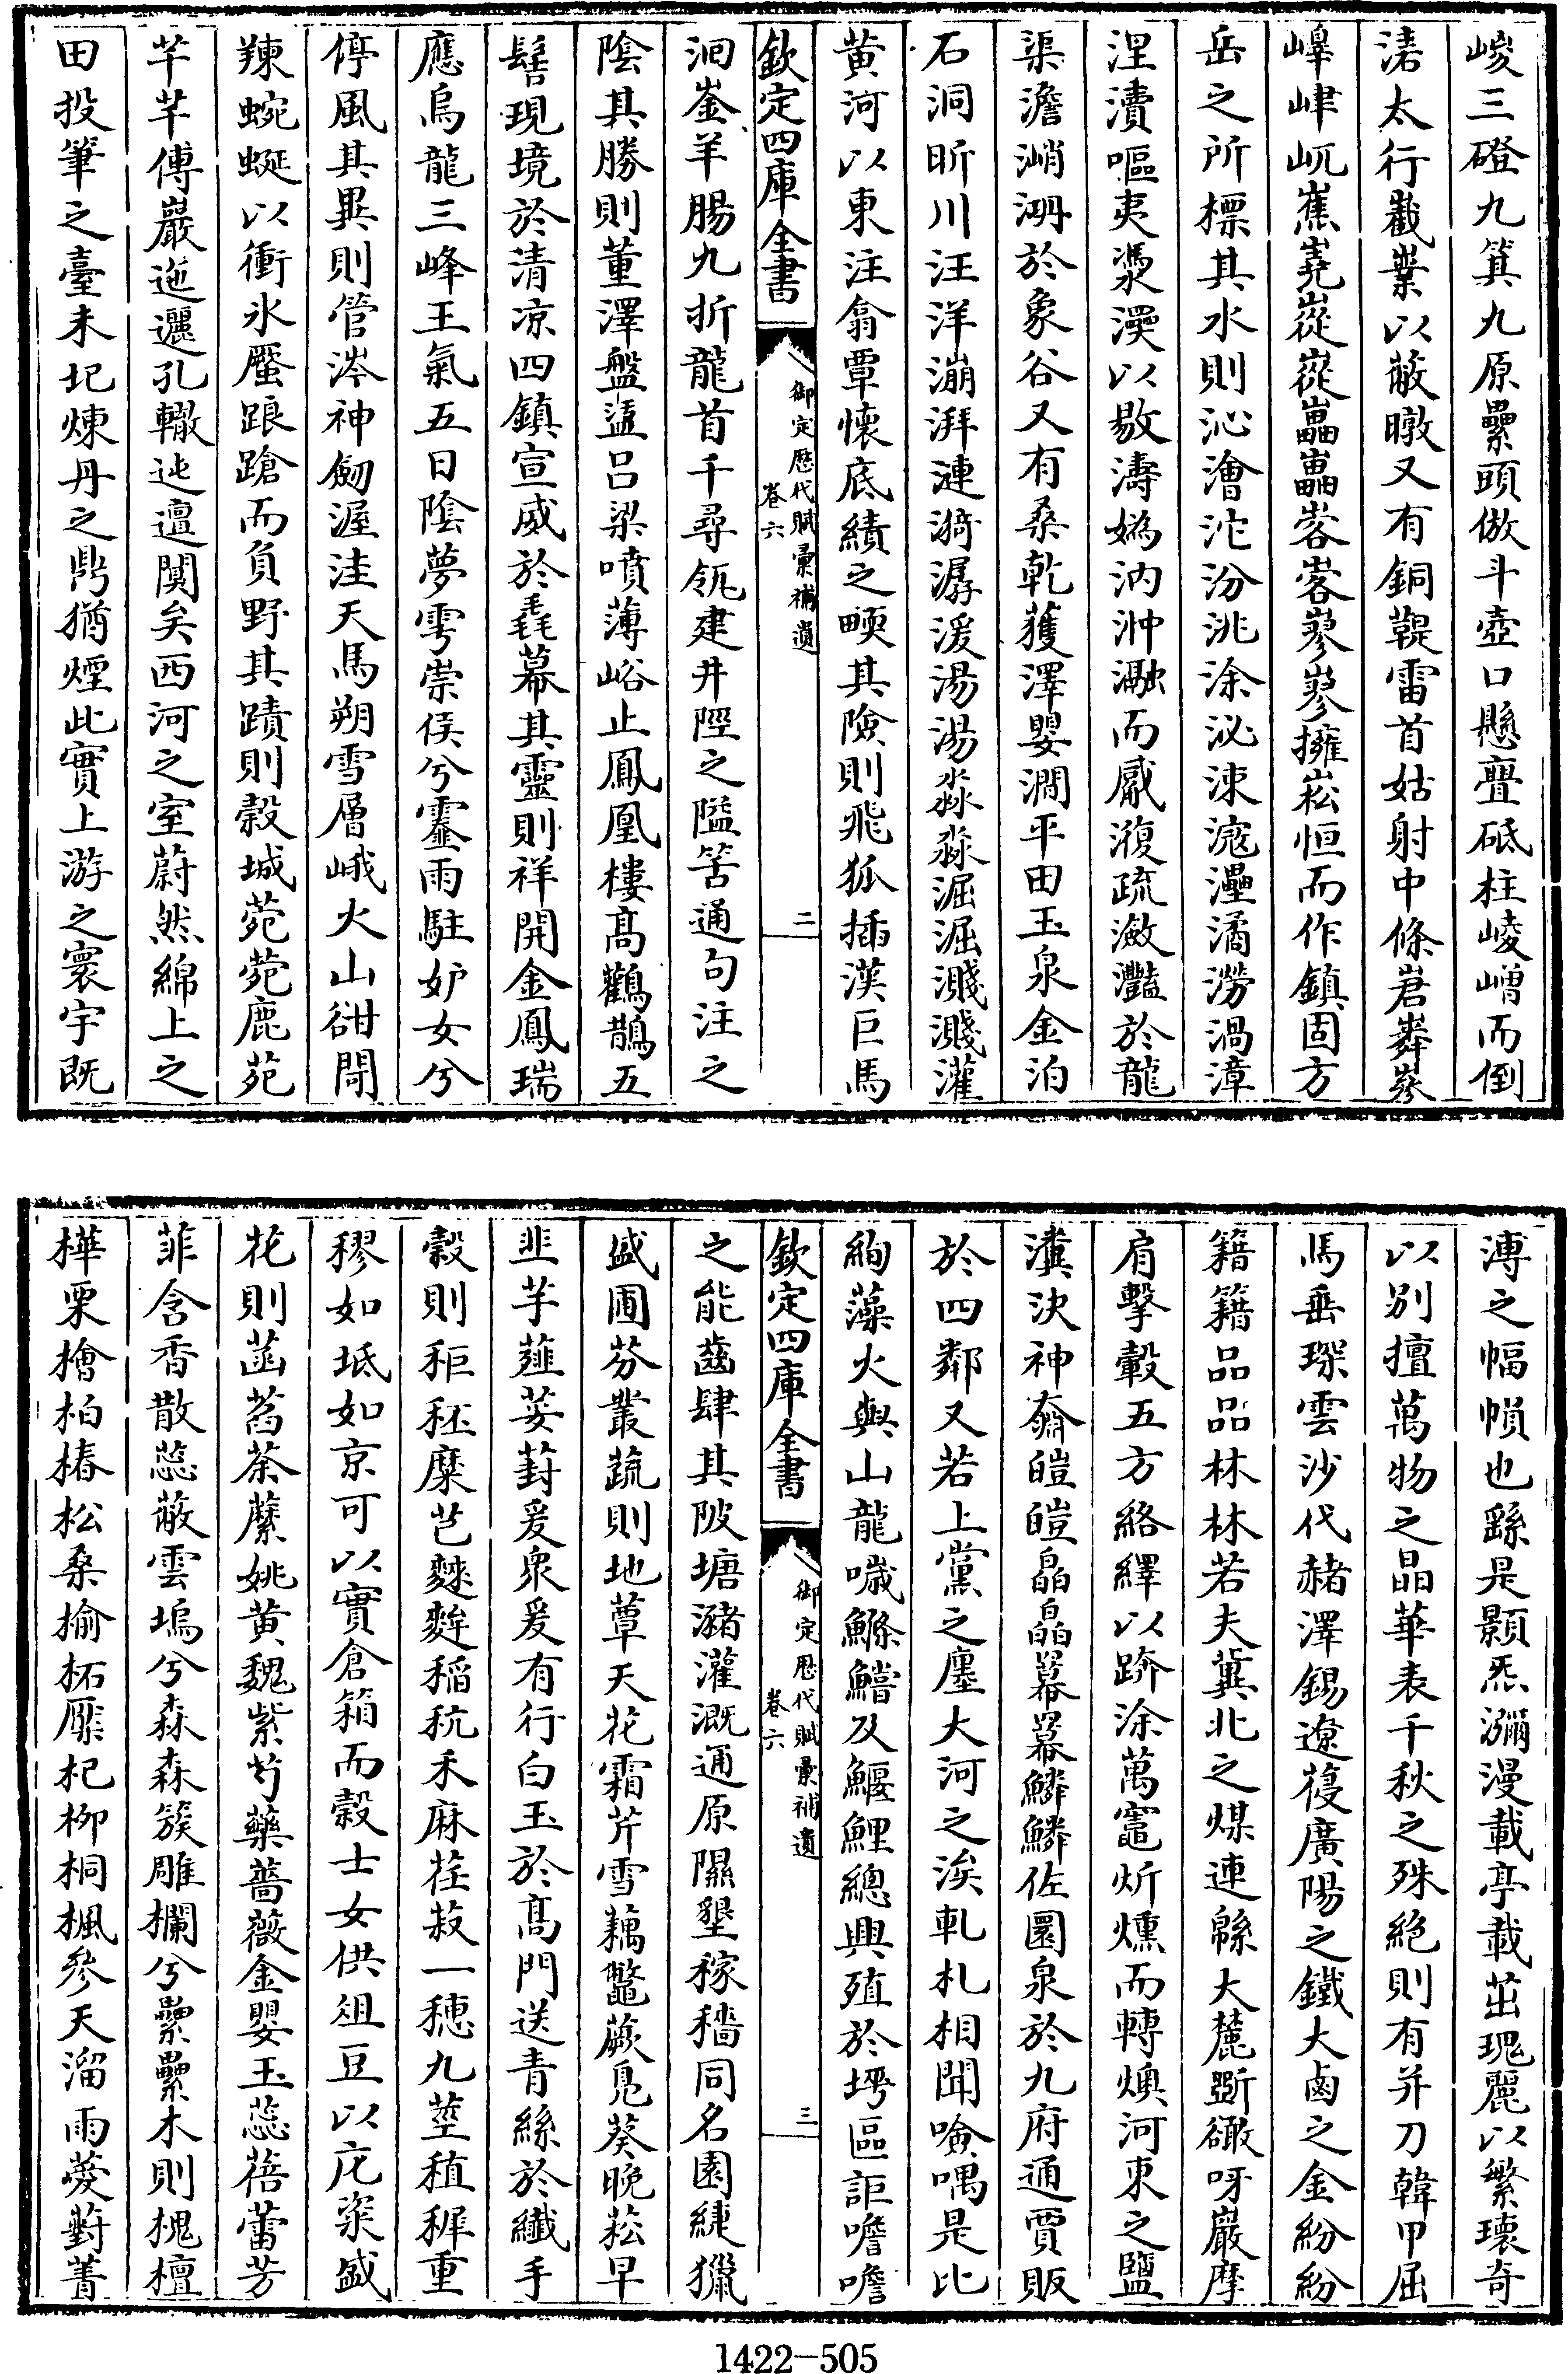 峻三磴九箕九原纍頭倣斗壺口懸亹砥柱崚嶒而倒
渚太行嶻嶪以蔽暾又有銅鞮雷首姑射中條岩嶙嵾
崞峍屼嶣嶤嵸嵸巤巤峉峉嵺嵺擁崧恒而作鎮固方
岳之所標其水則沁澮沱汾洮涂泌涑滱灅潏澇渦漳
涅瀆嘔夷濝湨以敭濤媯汭浺瀜而灪澓疏瀲灩於龍
渠澹淵於象谷又有桑乾獲澤嬰澗平田玉泉金泊
石洞昕川汪洋漰湃漣漪潺湲湯湯淼淼淈淈濺濺灌
黄河以東注翕覃懷底績之畹其險則飛狐插漢巨馬
欽定四庫全書
御定歷代賦彙補遺
卷六
二
洄崟羊腸九折龍首千尋瓴建井陘之隘笤通句注之
陰其勝則董澤盤盓吕梁噴薄峪止鳳凰樓髙鸛鵲五
髻現境於清凉四鎮宣威於毳幕其靈則祥開金鳳瑞
應烏龍三峰王氣五日陰夢雩崇侯兮靈雨駐妒女兮
停風其異則管涔神劒渥洼天馬朔雪層峨火山谽閜
竦蜿蜒以衝氷蜃踉蹌而負野其蹟則穀城菀菀鹿苑
芊芊傳巖迤邐孔轍迍邅闃矣西河之室蔚然綿上之
田投筆之臺未圮煉丹之鼎猶煙此實上游之寰宇既
溥之幅幀也繇是顥炁瀰漫載亭載茁瑰麗以繁瓌奇
以别擅萬物之晶華表千秋之殊絶則有并刀韓甲屈
馬垂琛雲沙代赭澤錫遼葠廣陽之鐵大鹵之金紛紛
籍籍品品林林若夫冀北之煤連緜大麓斵礉呀巖摩
肩擊轂五方絡繹以躋涂萬竈炘燻而轉燠河東之鹽
瀵決神奫皚皚皛皛冪冪鱗鱗佐圜泉於九府通賈販
於四鄰又若上黨之廛大河之涘軋札相聞喁喁是比
絢藻火與山龍噞鰷鱨及鰋鯉總興殖於坶區詎噡噡
欽定四庫全書
御定歷代賦彙補遺
卷六
三
之能齒肆其陂塘瀦灌溉通原隰墾稼穡同名園緁獵
盛圃芬叢蔬則地蕈天花霜芹雪藕鼈蕨鳧葵晩菘早
韭芋薤荽葑爰衆爰有行白玉於髙門送青絲於纖手
穀則秬秠糜芑䴬麰稻秔禾麻荏菽一穗九莖稙稺重
穋如坻如京可以實倉箱而穀士女供俎豆以庀粢盛
花則菡萏荼蘼姚黄魏紫芍藥薔薇金嬰玉蕊蓓蕾芳
菲含香散蕊蔽雲塢兮森森簇雕欄兮纍纍木則槐檀
樺栗檜柏椿松桑榆柘檿杞柳桐楓參天溜雨薆薱菁
1422-505